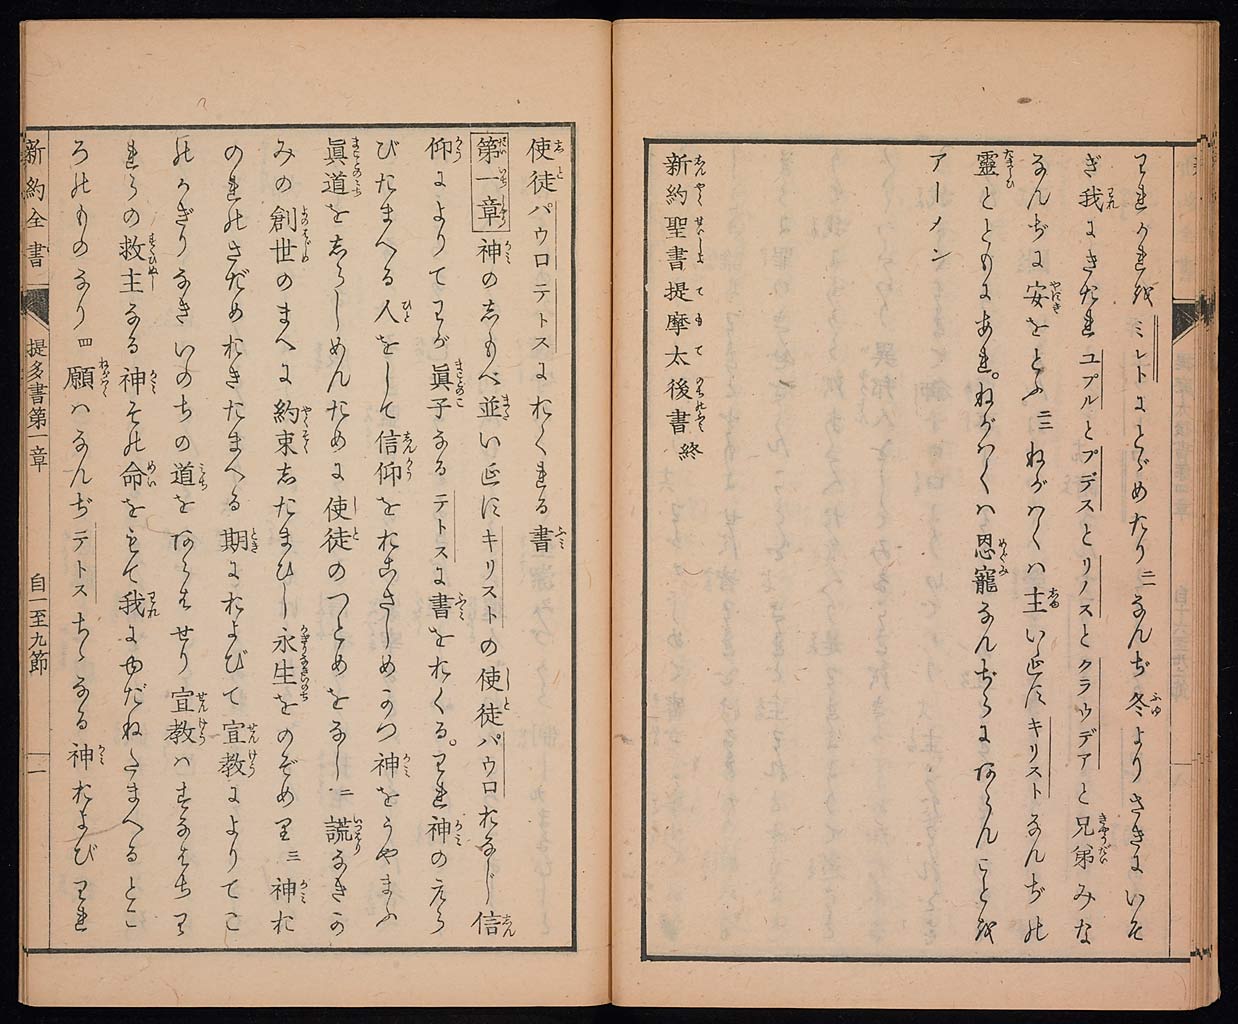 われかれをミレトにとゞめたり 二一 なんぢ冬よりさきにいそ
ぎ我にきたれユブルとプデスとリノスとクラウデアと兄弟みな
なんぢに安をとふ 二二 ねがハくハ主いエスキリストなんぢの
靈とともにあれ。ねがハくハ恩寵なんぢらにあらんことを
アーメン
新約聖書提摩太後書 終
使徒パウロテトスにおくれる書
第一章 神の志もべ並いエスキリストの使徒パウロおなじ信
仰によりてわが眞子なるテトスに書をおくる。われ神のえら
びたまへる人をして信仰をおこさしめかつ神をうやまふ
眞道を志らしめんために使徒のつとめをなし 二 謊なきか
みの創世のまへに約束志たまひし永生をのぞめり 三 神お
のれのさだめおきたまへる期におよびて宣教によりてこ
のかぎりなきいのちの道をあらはせり宣教ハすなはちわ
れらの救主なる神その命をもて我にゆだねたまへるとこ
ろのものなり 四 願ハなんぢテトスちゝなる神およびわれ
新約全書 提多書第一章 自一至九節 一